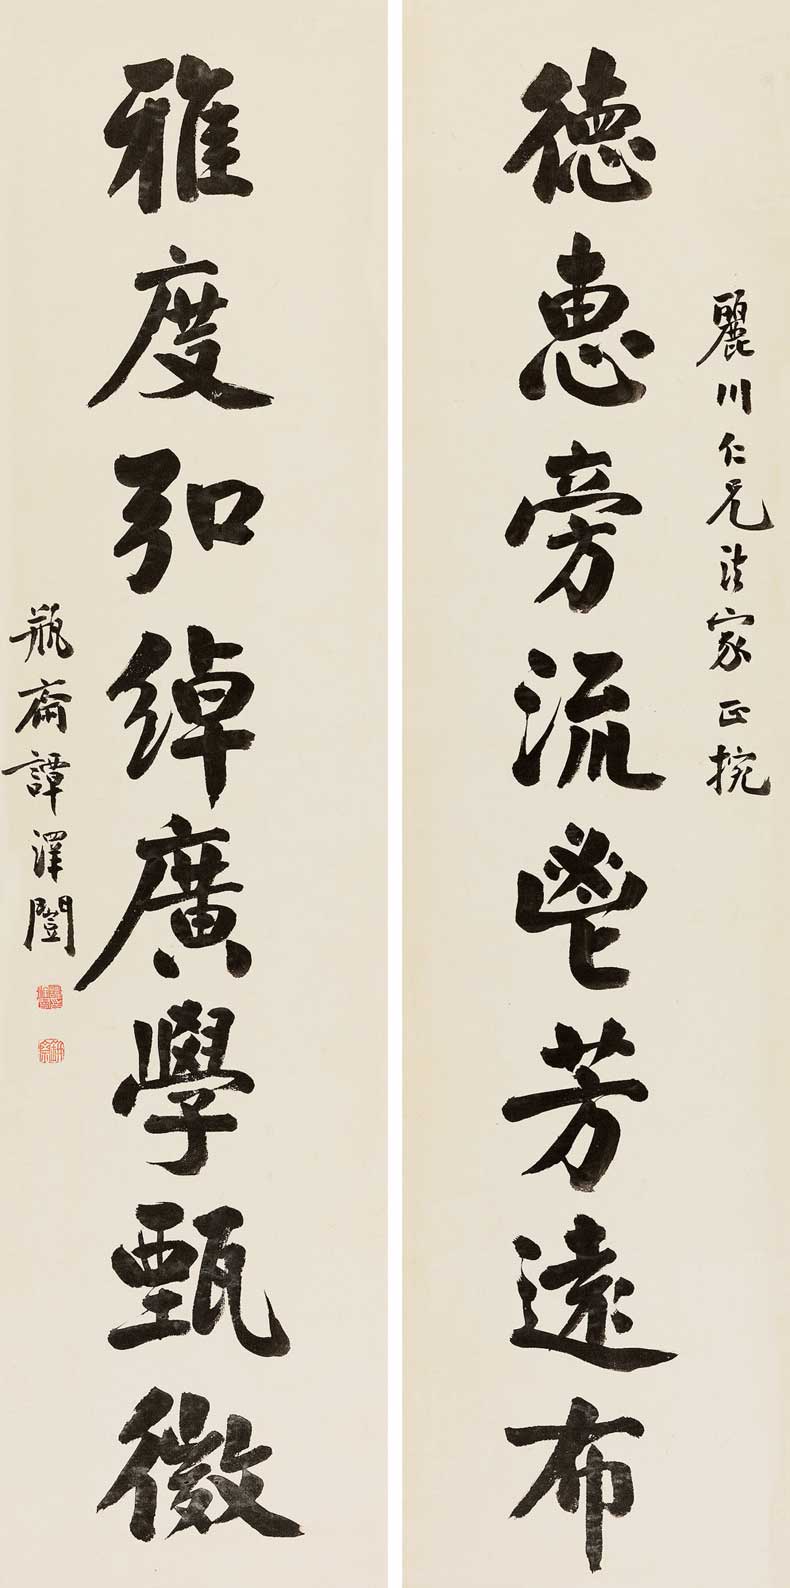 麗川仁兄法家正捥
德惠旁流鬯芳遠布
雅度弘綽廣學甄微
瓶齋譚澤闓